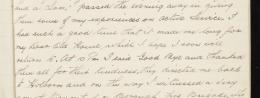 and a Son. I passed the evening away in giving
them some of my experiences on active Service. I
had such a good time that it made me long for
my dear old Home which I hope I soon will
return to. At 9 Pm I said Good Bye and thanked
them all for their kindness, they directed me back
to Holborn and on my way I witnessed a very